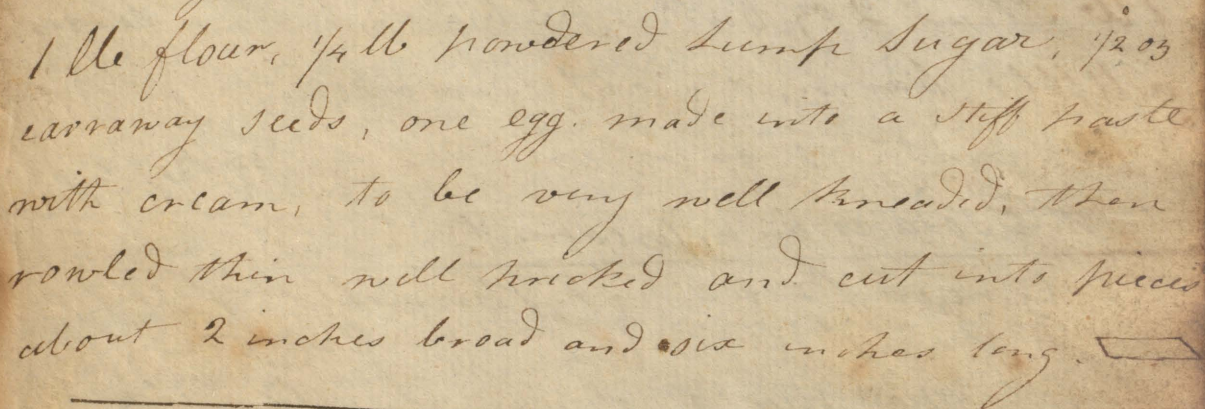 1 lb flour, 1/4 lb powdered Lump Sugar, 1/2 oz
carraway seeds, one egg. made into a stiff paste
with cream, to be very well kneaded, then
rowled thin well pricked and cut into pieces
about 2 inches broad and six inches long.